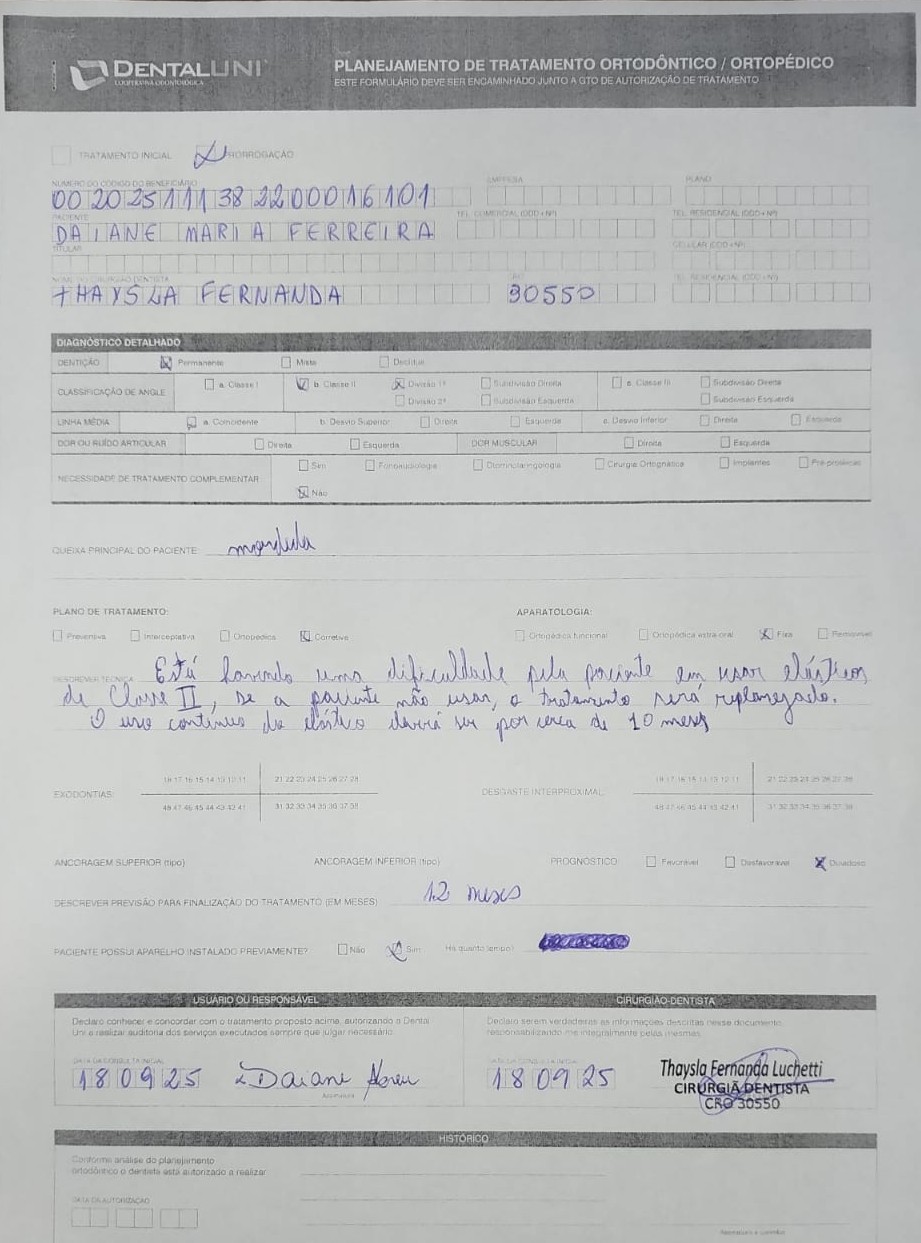 DENTALUNI
COOPERATIVA ODONTOLÓGICA
PLANEJAMENTO DE TRATAMENTO ORTODÔNTICO / ORTOPÉDICO
ESTE FORMULÁRIO DEVE SER ENCAMINHADO JUNTO A GTO DE AUTORIZAÇÃO DE TRATAMENTO
TRATAMENTO INICIAL PRORROGAÇÃO
NÚMERO DO CÓDIGO DO BENEFICIÁRIO EMPRESA PLANO
002025111382200016101
PACIENTE TEL. COMERCIAL (DDD+Nº) TEL. RESIDENCIAL (DDD+Nº)
DAIANE MARIA FERREIRA
TITULAR CELULAR (DDD+Nº)
CRO TEL. RESIDENCIAL (DDD+Nº)
THAYSLA FERNANDA 30550
DIAGNÓSTICO DETALHADO
DENTIÇÃO Permanente Mista Decídua
CLASSIFICAÇÃO DE ANGLE a. Classe I b. Classe II Divisão 1ª Subdivisão Direita c. Classe III Subdivisão Direita
Divisão 2ª Subdivisão Esquerda Subdivisão Esquerda
LINHA MÉDIA a. Coincidente b. Desvio Superior Direita Esquerda c. Desvio Inferior Direita Esquerda
DOR OU RUÍDO ARTICULAR Direita Esquerda DOR MUSCULAR Direita Esquerda
NECESSIDADE DE TRATAMENTO COMPLEMENTAR Sim Fonoaudiologia Otorrinolaringologia Cirurgia Ortognática Implantes Pré-protéticas
Não
QUEIXA PRINCIPAL DO PACIENTE: mordida
PLANO DE TRATAMENTO: APARATOLOGIA:
Preventiva Interceptativa Ortopédica Corretiva Ortopédica funcional Ortopédica extra oral Fixa Removível
DESCREVER TÉCNICA Está havendo uma dificuldade pela paciente em usar elásticos
de Classe II, se a paciente não usar, o tratamento será replanejado.
O uso contínuo do elástico deverá ser por cerca de 10 meses
18 17 16 15 14 13 12 11 21 22 23 24 25 26 27 28 18 17 16 15 14 13 12 11 21 22 23 24 25 26 27 28
EXODONTIAS: DESGASTE INTERPROXIMAL:
48 47 46 45 44 43 42 41 31 32 33 34 35 36 37 38 48 47 46 45 44 43 42 41 31 32 33 34 35 36 37 38
ANCORAGEM SUPERIOR (tipo) ANCORAGEM INFERIOR (tipo) PROGNÓSTICO: Favorável Desfavorável Duvidoso
DESCREVER PREVISÃO PARA FINALIZAÇÃO DO TRATAMENTO (EM MESES) 12 meses
PACIENTE POSSUI APARELHO INSTALADO PREVIAMENTE? Não Sim Há quanto tempo?
USUÁRIO OU RESPONSÁVEL CIRURGIÃO-DENTISTA
Declaro conhecer e concordar com o tratamento proposto acima, autorizando a Dental Declaro serem verdadeiras as informações descritas nesse documento
Uni a realizar auditoria dos serviços executados sempre que julgar necessário. responsabilizando-me integralmente pelas mesmas.
DATA DA CONSULTA INICIAL
180925 Daiane Abreu 180925
Assinatura
Thaysla Fernanda Luchetti
CIRURGIÃ DENTISTA
CRO 30550
HISTÓRICO
Conforme análise do planejamento
ortodôntico o dentista está autorizado a realizar
DATA DA AUTORIZAÇÃO